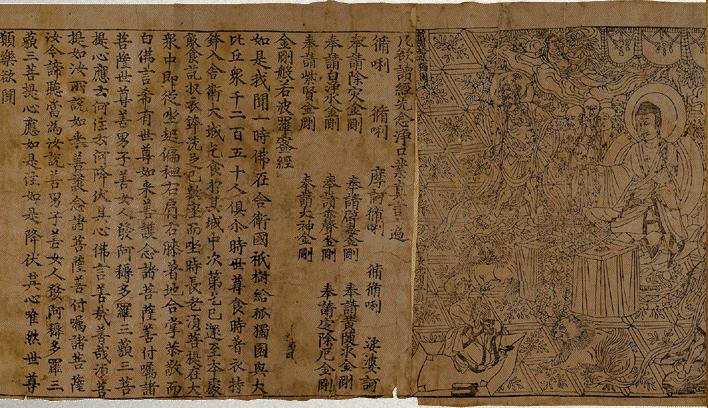 凡欲讀經先念淨口業真言一遍
脩唎 脩唎 摩訶脩唎 脩脩唎 娑婆訶
奉請除灾金剛 奉請辟毒金剛 奉請黃隨求金剛
奉請白淨水金剛 奉請赤聲金剛 奉請定除厄金剛
奉請紫賢金剛 奉請大神金剛
金剛般若波羅蜜經
如是我聞一時佛在舍衛國祇樹給孤獨園與大
比丘眾千二百五十人俱尒時世尊食時著衣持
鉢入舍衛大城乞食於其城中次第乞已還至本處
飯食訖收衣鉢洗足已敷座而坐時長老須菩提在大
眾中即從坐起偏袒右肩右膝著地合掌恭敬而
白佛言希有世尊如來善護念諸菩薩善付囑諸
菩薩世尊善男子善女人發阿耨多羅三藐三菩
提心應云何住云何降伏其心佛言善哉善哉須菩
提如汝所說如來善護念諸菩薩善付囑諸菩薩
汝今諦聽當為汝說善男子善女人發阿耨多羅三
藐三菩提心應如是住如是降伏其心唯然世尊
願樂欲聞